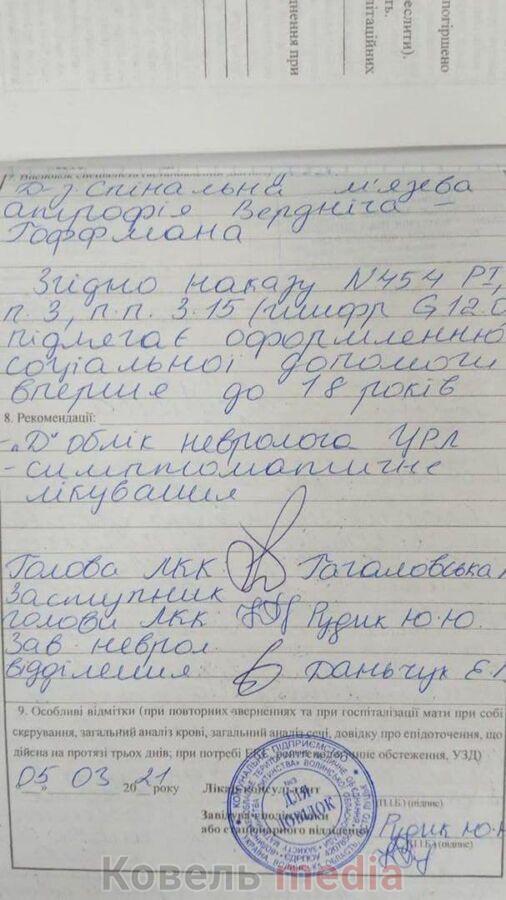 погіршено
реслити).
ть.
літаційних
днення при
Д-з: Спінальна м'язева
атрофія Вердніга –
Гоффмана
Згідно наказу N454 РІ,
п. 3, п.п. 3.15 (шифр G12.0
підлягає оформленню
соціальної допомоги
вперше до 18 років
8. Рекомендації:
- „Д" облік невролога ЦРЛ
- симптоматичне
лікування
Голова ЛКК Гагаловська
Заступник
голови ЛКК Рудик Ю.Ю.
Зав неврол
відділення Даньчук Є.
9. Особливі відмітки (при повторних звереннях та при госпіталізації мати при собі
скерування, загальний аналіз крові, загальний аналіз сечі, довідку про епідоточення, що
дійсна на протязі трьох днів; при потребі ЕКГ, обстеження, УЗД)
05 03 2021 року Лікар-консультант
(П.І.Б.) (підпис)
Завідувач
або стаціонарного відділення Рудик Ю.Ю
(П.І.Б.) (підпис)
КОМУНАЛЬНЕ ПІДПРИЄМСТВО
ДЛЯ
ДОВІДОК
Ковель media